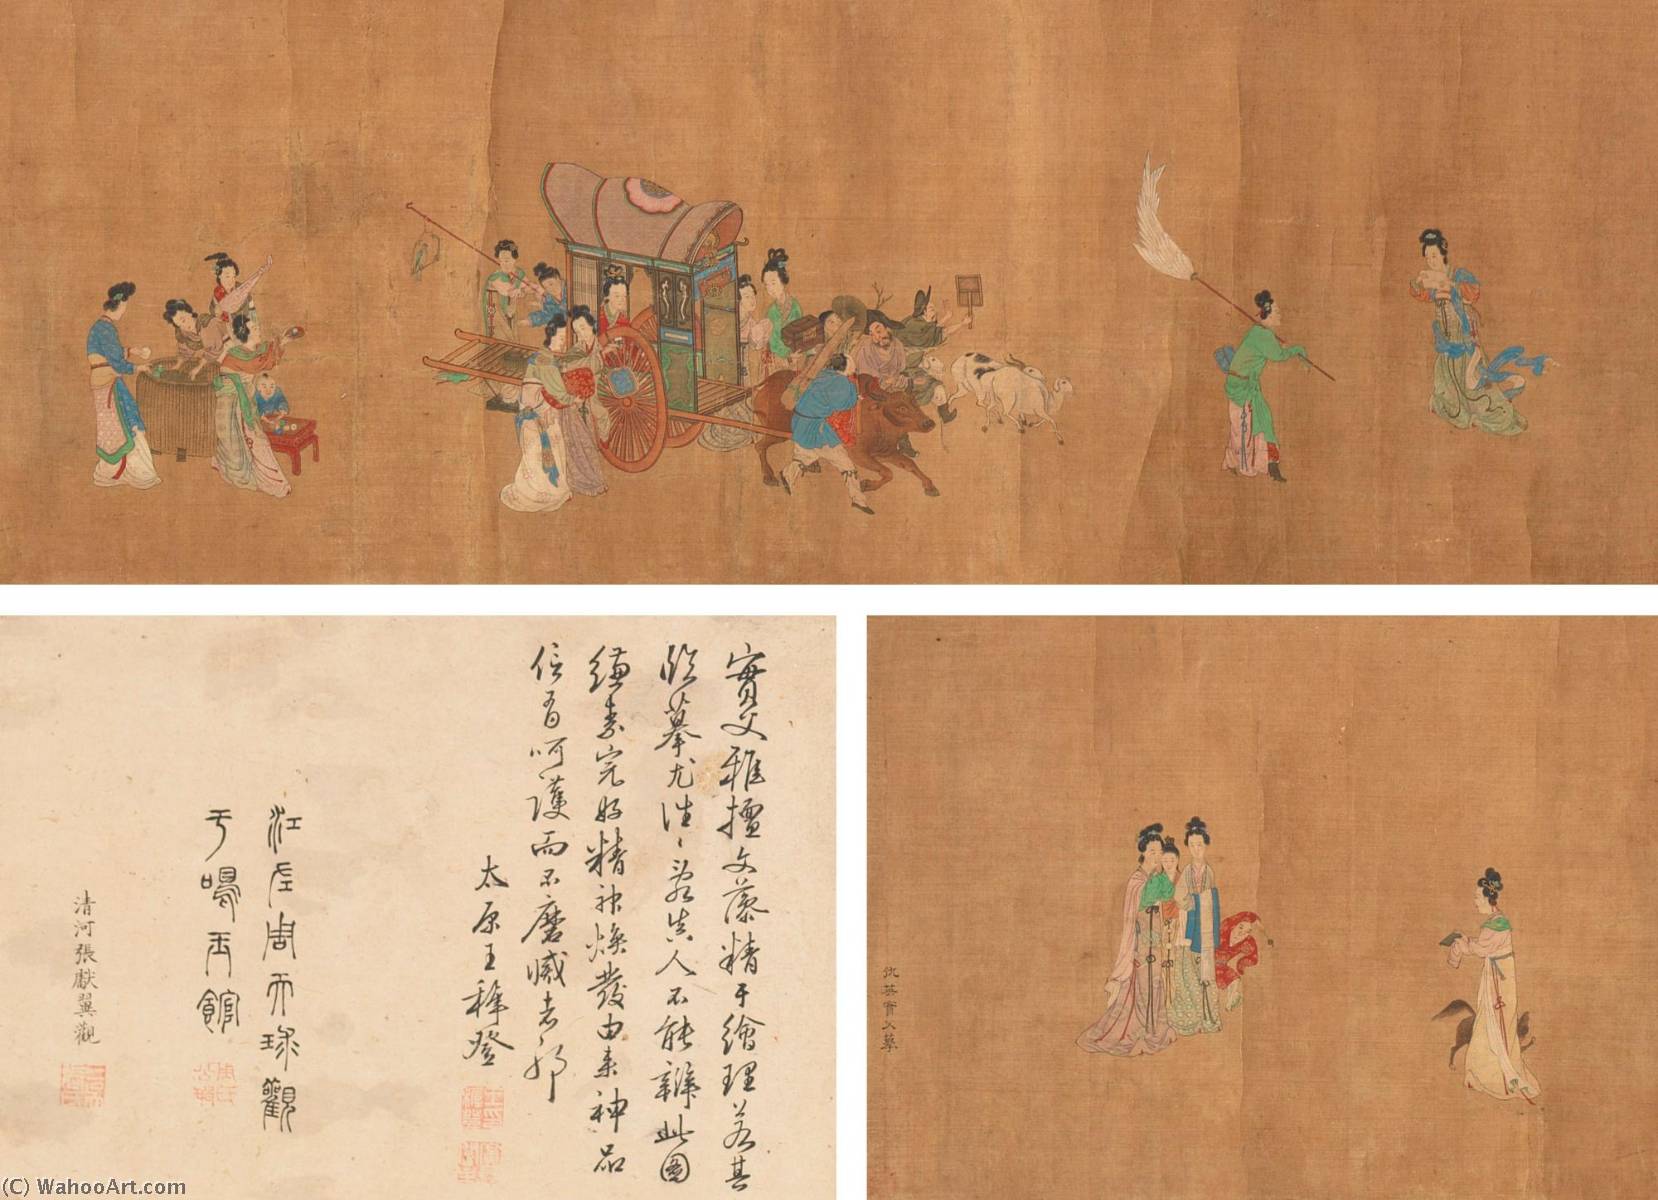 實父雅擅文藻精于繪理若其
臨摹尤往〻亂真人不能辨此圖
縑素完好精神煥發由来神品
信有呵護而不磨滅者耶
太原王穉登
江左周天球觀
于鳴玉館
清河張獻翼觀
仇英實父摹
(C) WahooArt.com